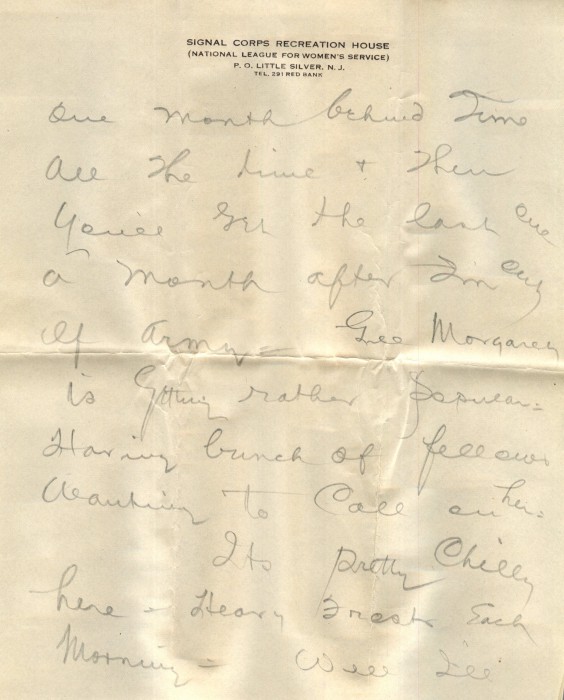 SIGNAL CORPS RECREATION HOUSE
(NATIONAL LEAGUE FOR WOMEN'S SERVICE)
P. O. LITTLE SILVER, N. J.
TEL, 291 RED BANK
One month behind Time
all the time & then
You'll get the last one
a month after I'm out
of Army - Gee Margaret
is getting rather popular -
Having bunch of fellows
Wanting to Call on her.
Its pretty Chilly
here - Heavy Frosts Each
Morning - Well I'll